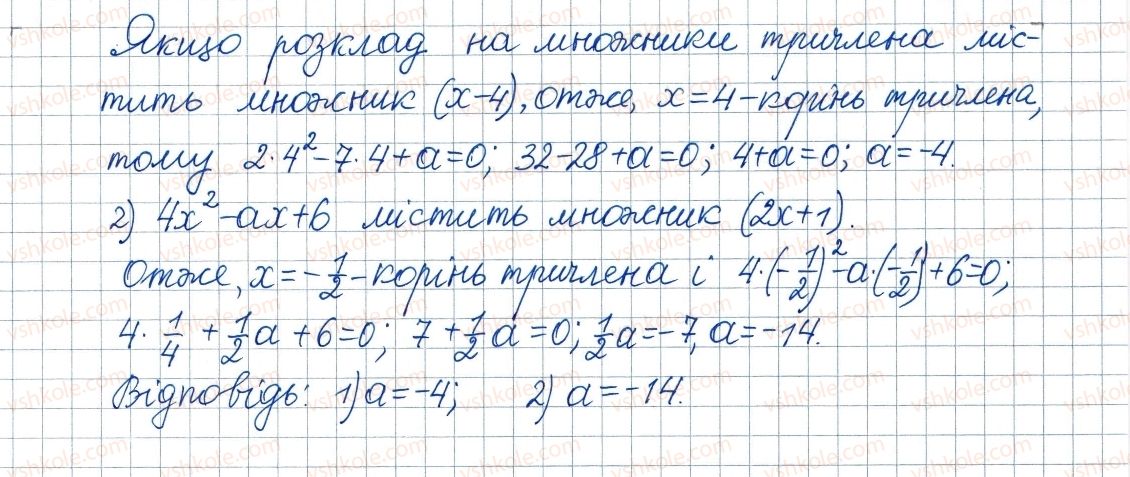 Якщо розклад на множники тричлена міс-
тить множник (x-4), отже, x=4-корінь тричлена,
тому 2·4²-7·4+a=0; 32-28+a=0; 4+a=0; a=-4.
2) 4x²-ax+6 містить множник (2x+1).
Отже, x=-1/2-корінь тричлена і 4·(-1/2)²-a·(-1/2)+6=0;
4·1/4+1/2a+6=0; 7+1/2a=0; 1/2a=-7, a=-14.
Відповідь: 1) a=-4; 2) a=-14.